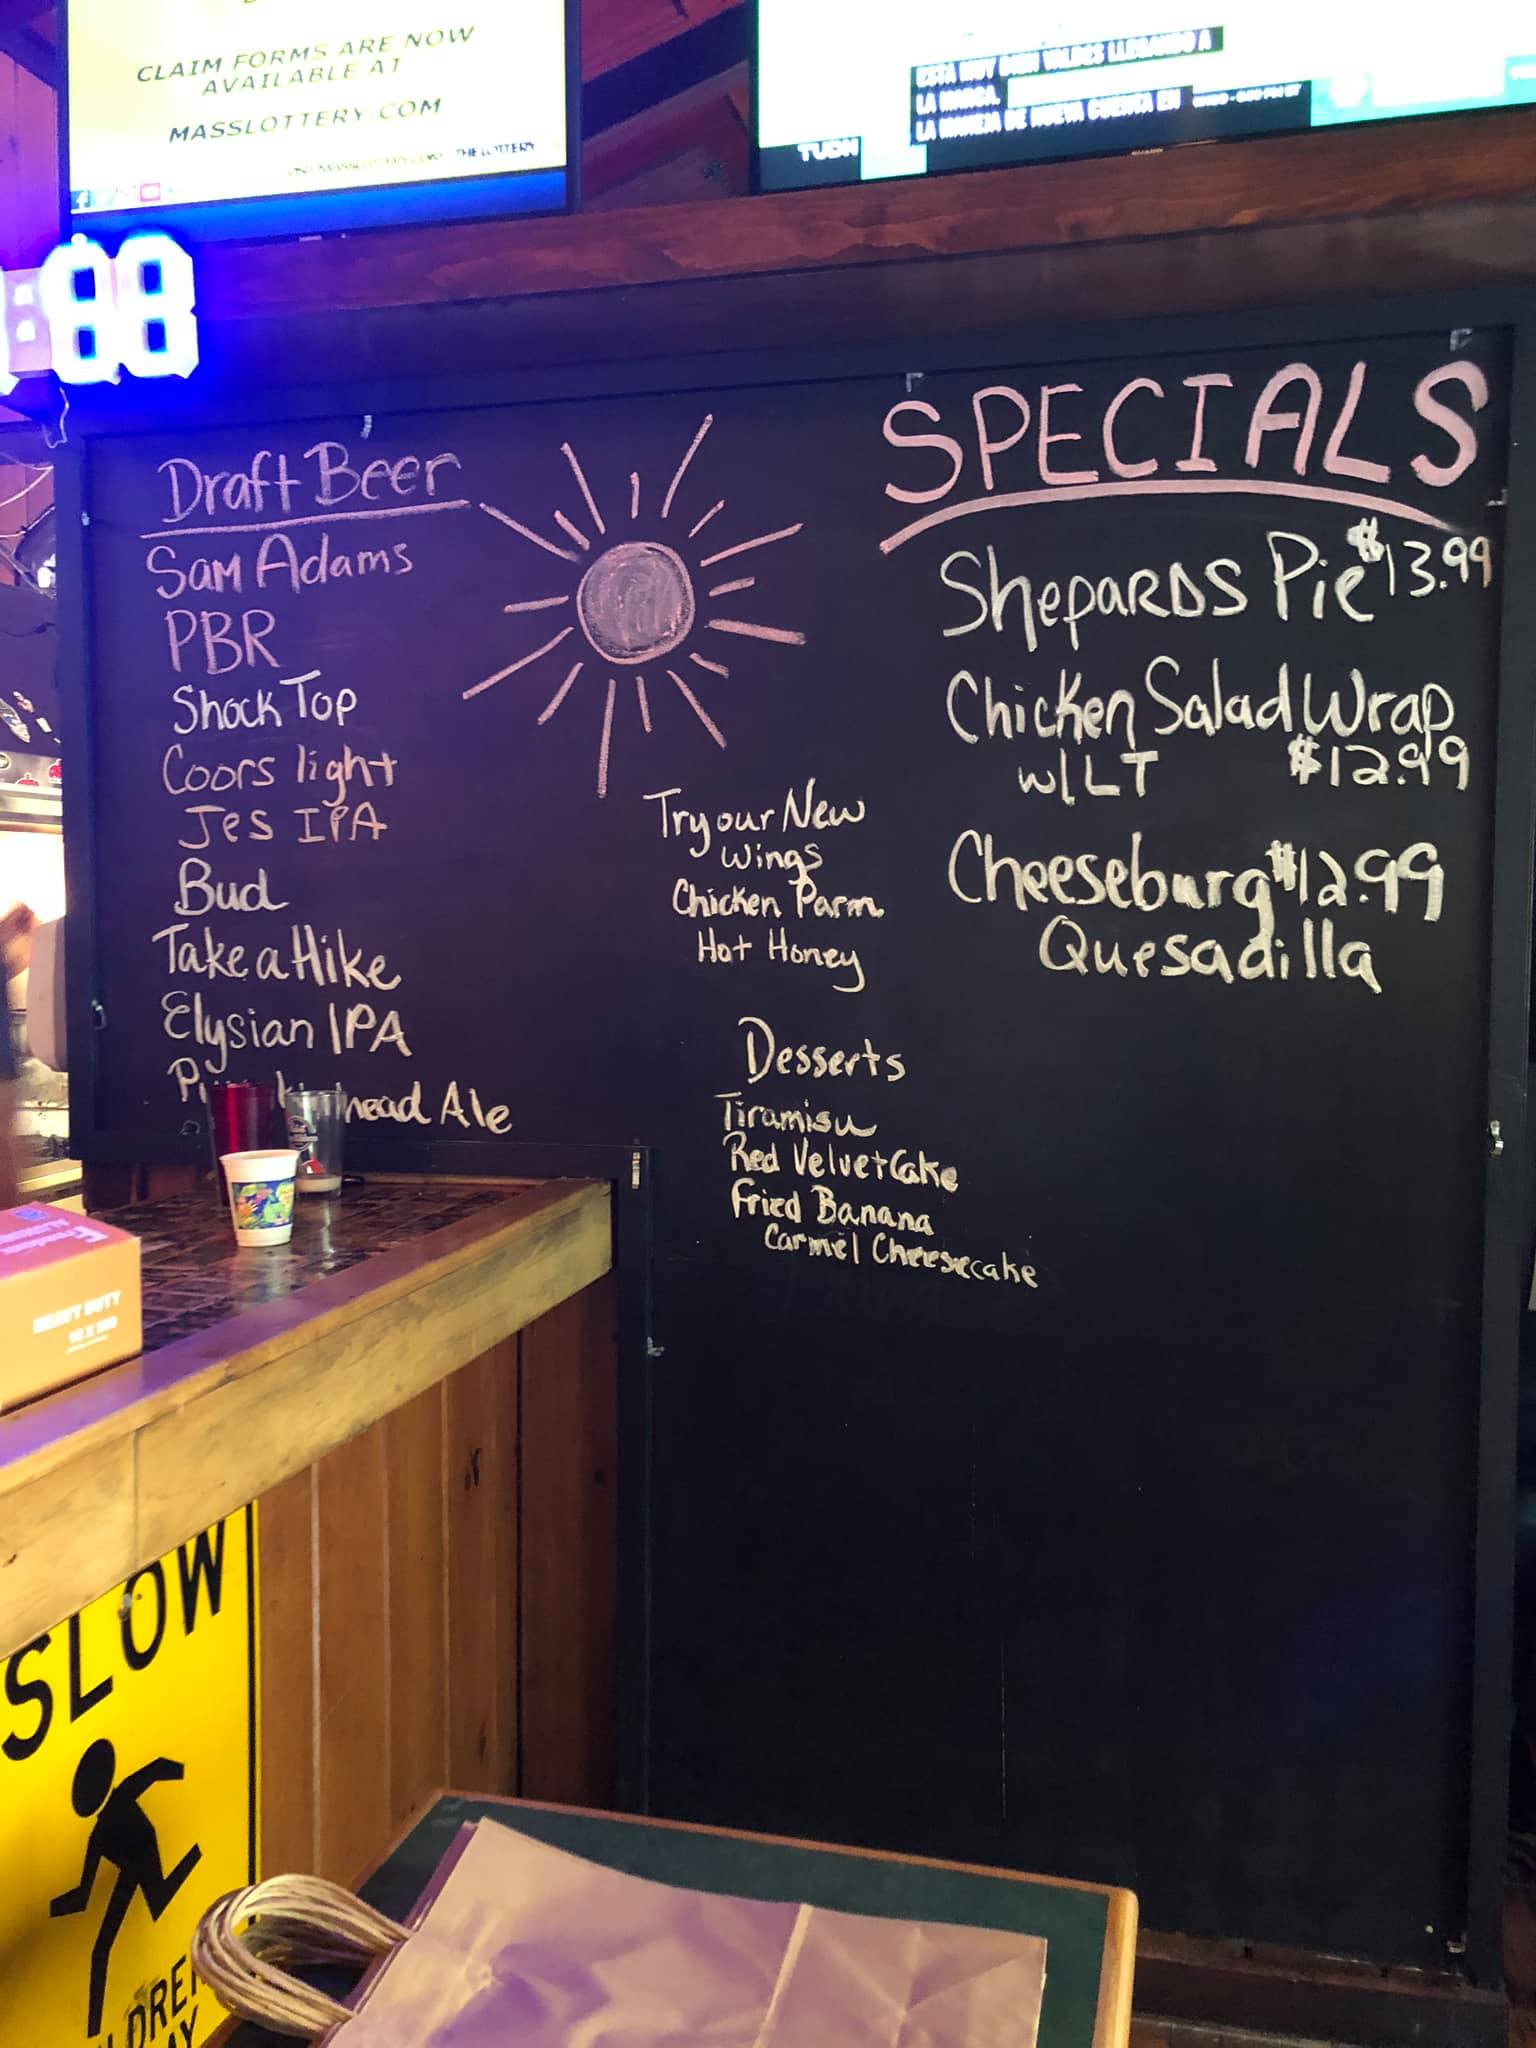 CLAIM FORMS ARE NOW
AVAILABLE AT
MASSLOTTERY.COM
THE LOTTERY
ESTA MUY BIEN VALDES LLEGANDO A
LA MARCA.
LA MANEJA DE NUEVA CUENTA EN
TUDN
:88
Draft Beer
Sam Adams
PBR
Shock Top
Coors light
Jes IPA
Bud
Take a Hike
Elysian IPA
head Ale
Try our New
Wings
Chicken Parm
Hot Honey
Desserts
Tiramisu
Red Velvet Cake
Fried Banana
Carmel Cheesecake
SPECIALS
Shepards Pie $13.99
Chicken Salad Wrap
w/ LT $12.99
Cheeseburg $12.99
Quesadilla
HEAVY DUTY
SLOW